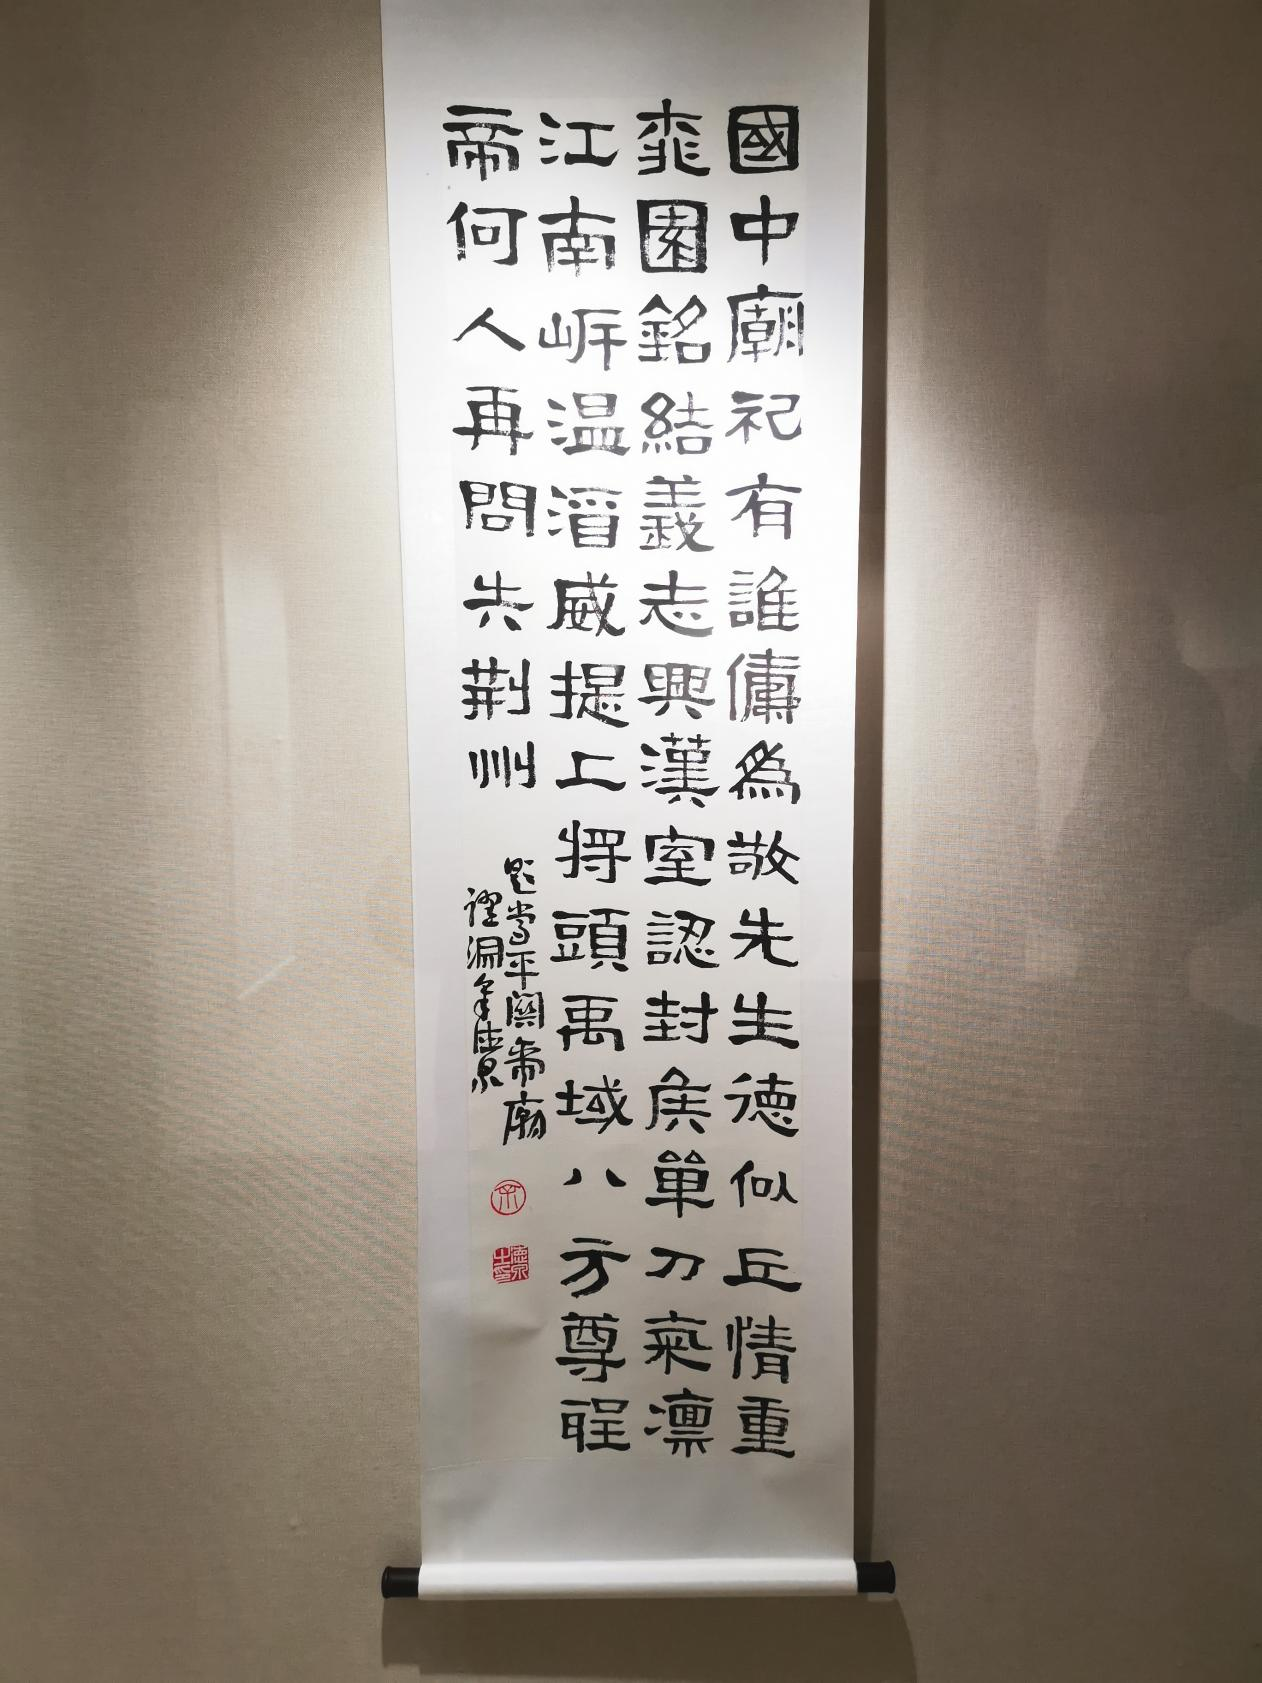 國中廟祀有誰傭為敬先生德似丘情重
桃園銘結義志興漢室認封侯單刀氣凜
江南岸温酒威提上将頭禹域八方尊聖
帝何人再問失荊州
題常平關帝廟
余德泉
余